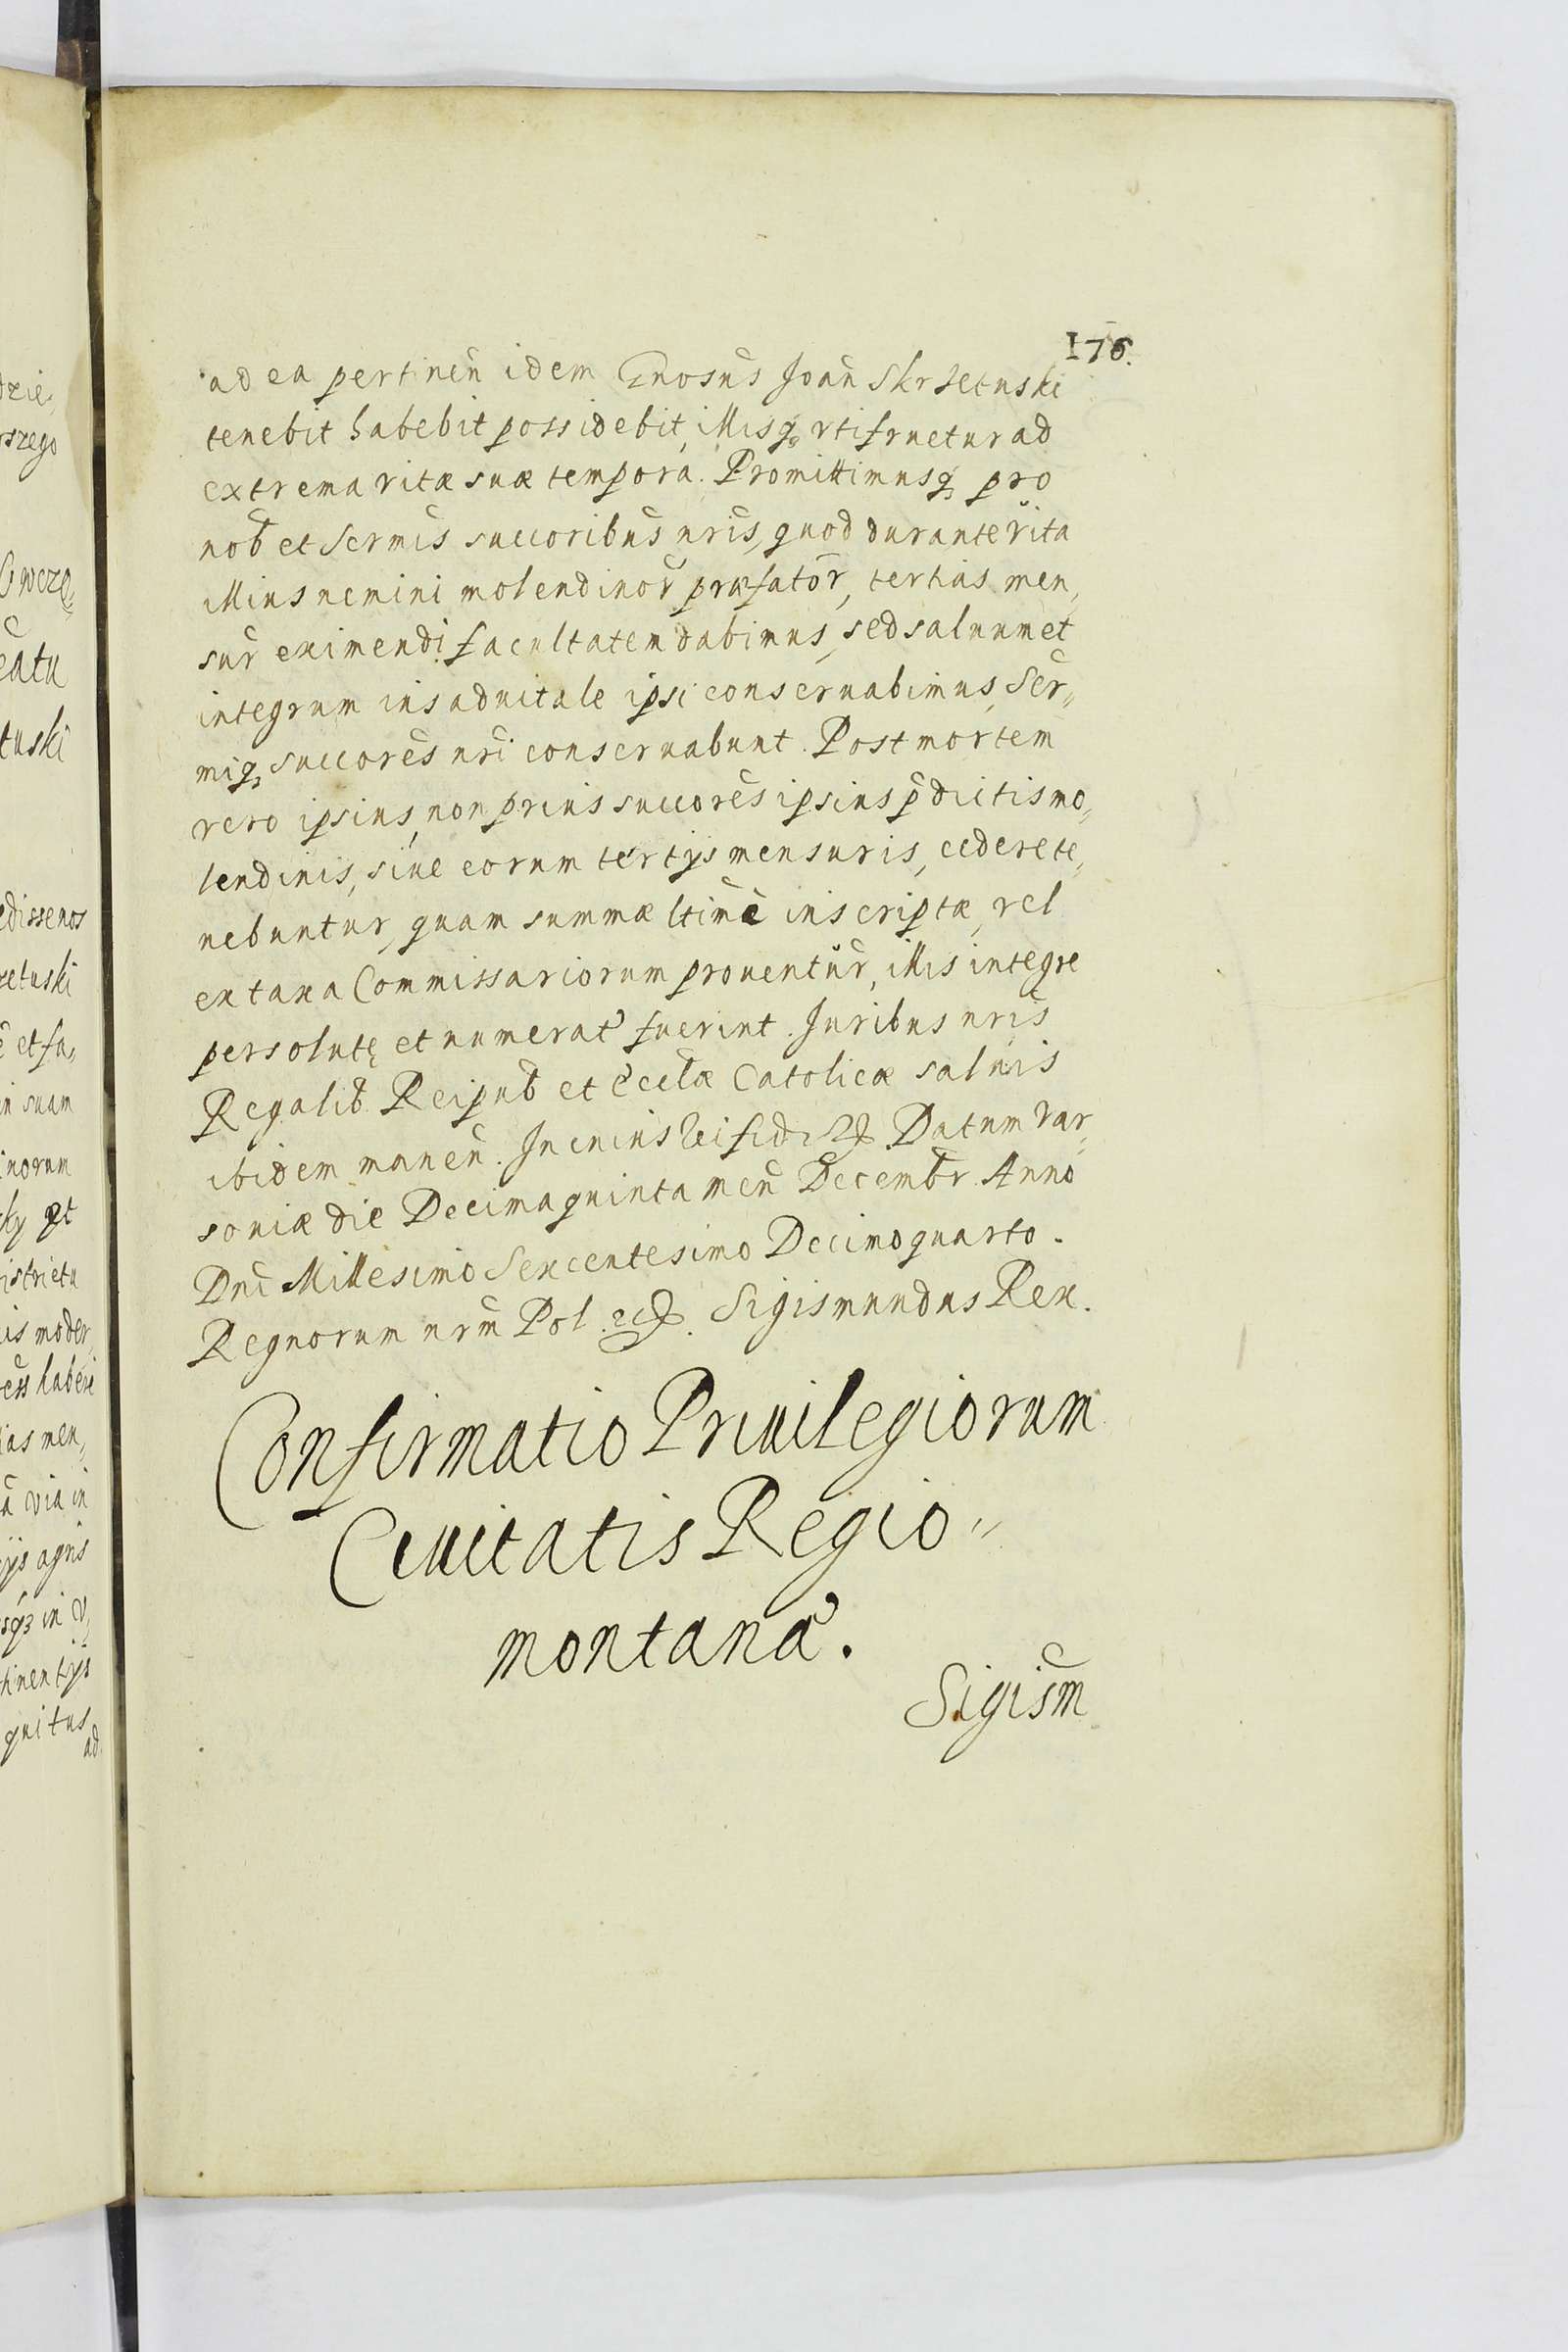 176.
ad ea pertinen̄ idem Gnosus Joan̄ Skrzetuski
tenebit habebit possidebit, illisq₃ vtifruetur ad
extrema vitæ suæ tempora. Promittimusq₃ pro
nob̄ et Sermis succoribus nris, quod durante vita
illius nemini molendinor̄ præfator̄, tertias men,
sur̄ eximendi facultatem dabimus, sed saluum et
integrum ius aduitale ipsi conseruabimus, Ser„
miq₃ succores nri conseruabunt. Post mortem
vero ipsius, non prius succores ipsius p̄dictis mo„
lendinis, siue eorum tertijs mensuris, cedere te„
nebuntur, quam summæ ltime inscriptæ, vel
ex taxa Commissariorum prouentur̄, illis integre
persolutę et numerat' fuerint. Juribus nris
Regalib. Reipub̄ et Eccłæ Catolicæ saluis
ibidem manen̄. In cuius rei fid: etc. Datum Var„
souiæ die Decima quinta men̄ Decembr̄. Anno
Dni Millesimo Sexcentesimo Decimo quarto.
Regnorum nrm̄ Pol. etc. Sigismundus Rex.
Confirmatio Priuilegiorum
Ciuitatis Regio„
montana'.
Sigism̄
dzie,
rszego
Owczę„
eatu
tuski
edissenos
zetuski
et fa„
in suam
inorum
ky et
istrictu
is moder„
ess habere
ias men„
a via in
ijs agris
sq₃ in v,
tinentijs
quitus
ad.